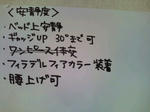 <安静度>
・ベッド上安静
・ギャッジUP 30°まで可
・フィラデルフィアカラー装着
・腰上げ可